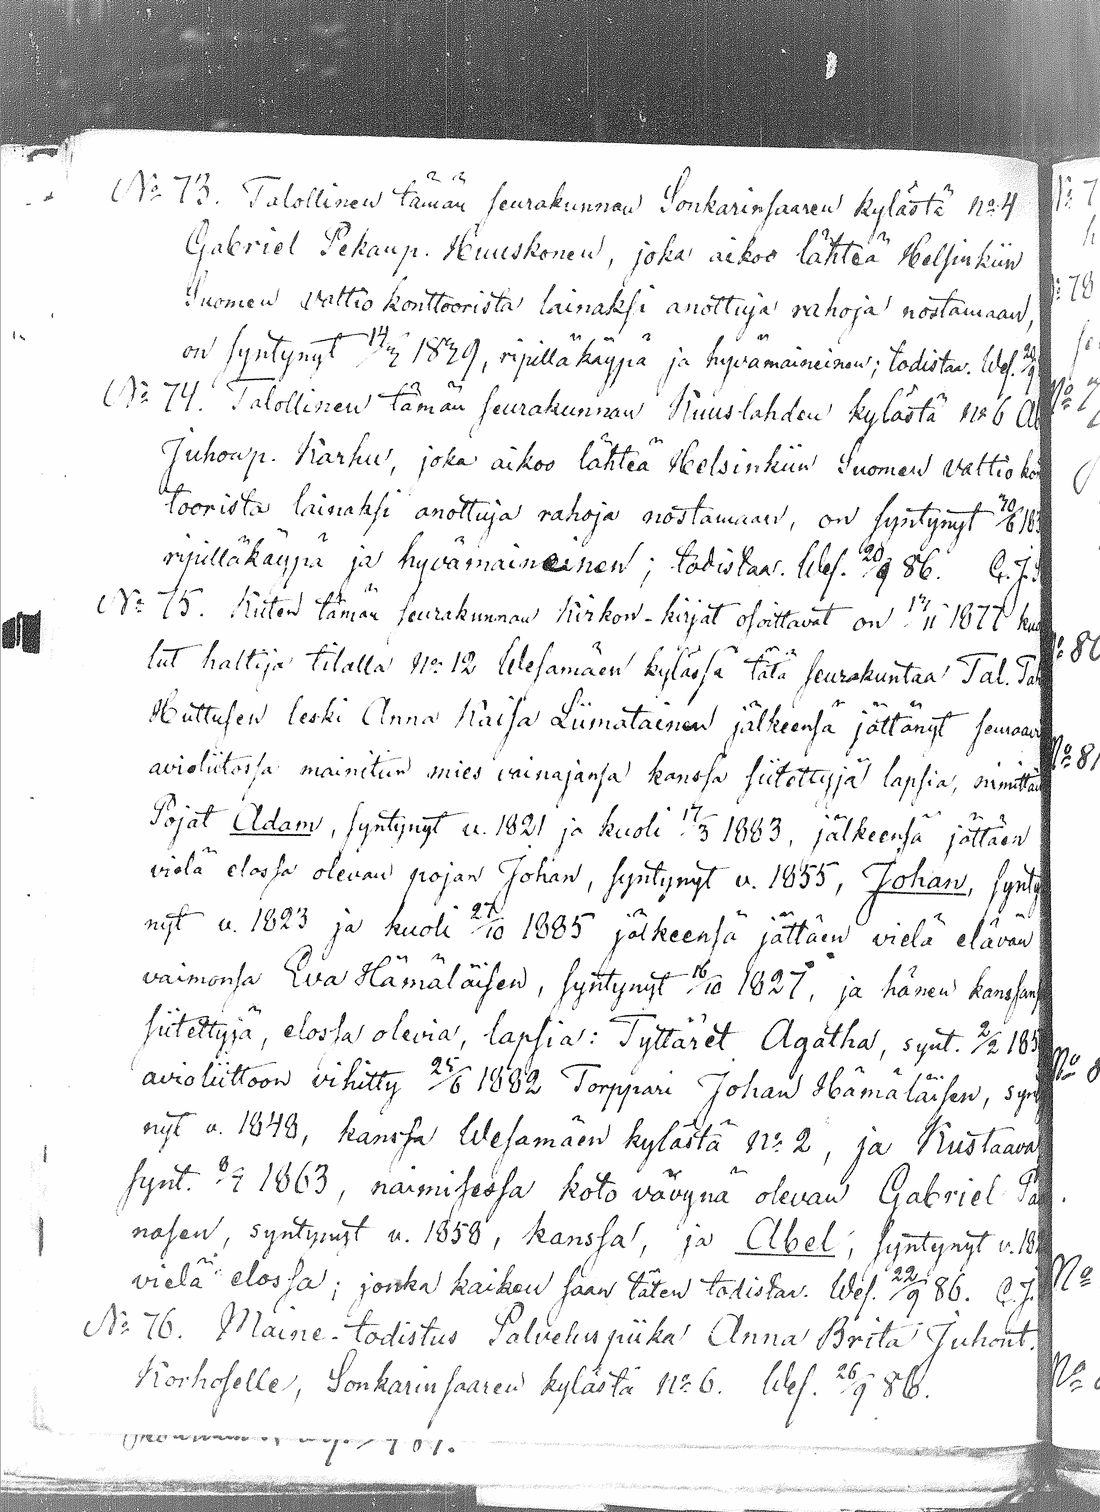 No 73. Talollinen tämän seurakunnan Sonkarinsaaren kylästä no 4
Gabriel Pekanp. Huuskonen, joka aikoo lähteä Helsinkiin
Suomen valtio konttoorista lainaksi anottuja rahoja nostamaan,
on syntynyt 1839, ripilläkäypä ja hyvämaineinen; todistaa. Wes. 20/9
No 74. Talollinen tämän seurakunnan Kuuslahden kylästä no 6
Juhonp. Karhu, joka aikoo lähteä Helsinkiin Suomen valtio kon
toorista lainaksi anottuja rahoja nostamaan, on syntynyt
ripilläkäypä ja hyvämaineinen; todistaa. Wes. 20/9 86. C. J.
No 75. Kuten tämän seurakunnan Kirkon-kirjat osoittavat on 1877 kuo
lut haltija tilalla no 12 Wesamäen kylässä tätä seurakuntaa Tal.
Huttusen leski Anna Kaisa Liimatainen jälkeensä jättänyt seuraavi
avioliitossa mainitun mies vainajansa kanssa siitettyjä lapsia, nimittäin
Pojat Adam, syntynyt v. 1821 ja kuoli 17/3 1883, jälkeensä jättäen
vielä elossa olevan pojan Johan, syntynyt v. 1855, Johan, synty
nyt v. 1823 ja kuoli 27/10 1885 jälkeensä jättäen vielä elävän
vaimonsa Eva Hämäläisen, syntynyt 16/10 1827, ja hänen kanssans
siitettyjä, elossa olevia, lapsia: Tyttäret Agatha, synt. 2/2 185
avioliittoon vihitty 25/6 1882 Torppari Johan Hämäläisen, synt
nyt v. 1848, kanssa Wesamäen kylästä no 2, ja Kustaava
synt. 1863, naimisessa koto vävynä olevan Gabriel
nasen, syntynyt v. 1858, kanssa, ja Abel, syntynyt v. 18
vielä elossa; jonka kaiken saan täten todistaa. Wes. 22/9 86. C. J.
No 76. Maine-todistus Palveluspiika Anna Brita Juhont.
Korhoselle, Sonkarinsaaren kylästä no 6. Wes. 26/9 86.